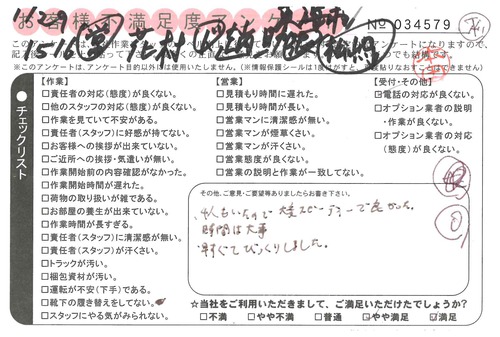 お客様不満足度アンケート
11/29
No 034579
この
アンケートになりますので、
※このアンケートは、アンケート目的以外には使用いたしません。
チェックリスト
【作業】
□責任者の対応(態度)が良くない。
□他のスタッフの対応(態度)が良くない。
□作業を見ていて不安がある。
□責任者(スタッフ)に好感が持てない。
□お客様への挨拶が出来ていない。
□ご近所への挨拶・気遣いが無い。
□作業開始前の内容確認がなかった。
□作業開始時間が遅れた。
□荷物の取り扱いが雑である。
□お部屋の養生が出来ていない。
□作業時間が長すぎる。
□責任者(スタッフ)に清潔感が無い。
□責任者(スタッフ)が汗くさい。
□トラックが汚い。
□梱包資材が汚い。
□運転が不安(下手)である。
□靴下の履き替えをしてない。
□スタッフにやる気がみられない。
【営業】
□見積もり時間に遅れた。
□見積もり時間が長い。
□営業マンに清潔感が無い。
□営業マンが煙草くさい。
□営業マンが汗くさい。
□営業態度が良くない。
□営業の説明と作業が一致してない。
【受付・その他】
□電話の対応が良くない。
□オプション業者の説明
・作業が良くない。
□オプション業者の対応
(態度)が良くない。
その他、ご意見・ご要望等ありましたらお書き下さい。
4人もいたので大変スピーディーで良かった。
時間は大事
早すぎてびっくりしました。
☆当社をご利用いただきまして、ご満足いただけたでしょうか?
□不満 □やや不満 □普通 □やや満足 ☑満足